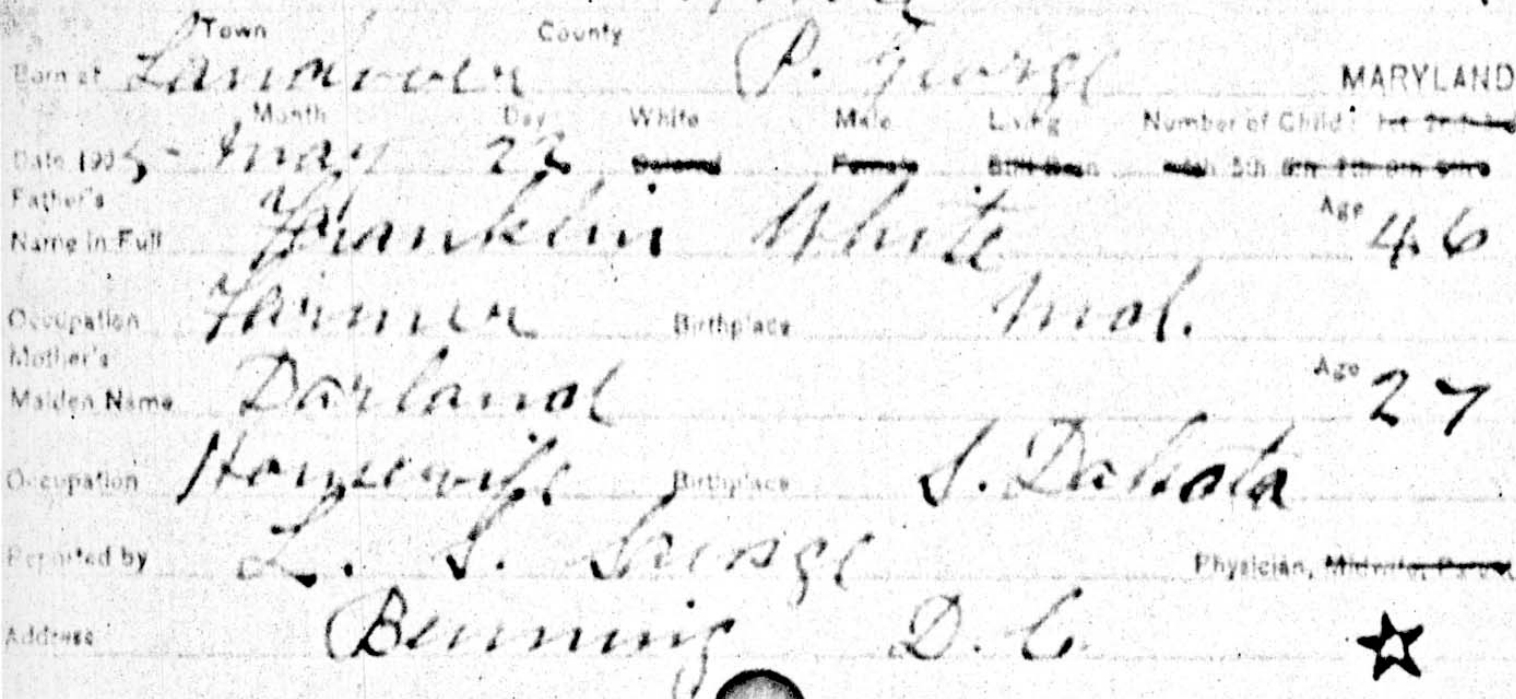 Town County
Born at Landover P. George MARYLAND
Month Day White Male Living Number of Child: 1st 2nd 3rd
Date 190 5, - May 22 Colored Female Still Born 4th 5th 6th 7th 8th 9th
Father's
Name in Full Franklin White Age 46
Occupation Farmer Birthplace Md.
Mother's
Maiden Name Darland Age 27
Occupation Housewife Birthplace S. Dakota
Reported by L. S. Savage Physician, Midwife, Parent
Address Benning D. C.